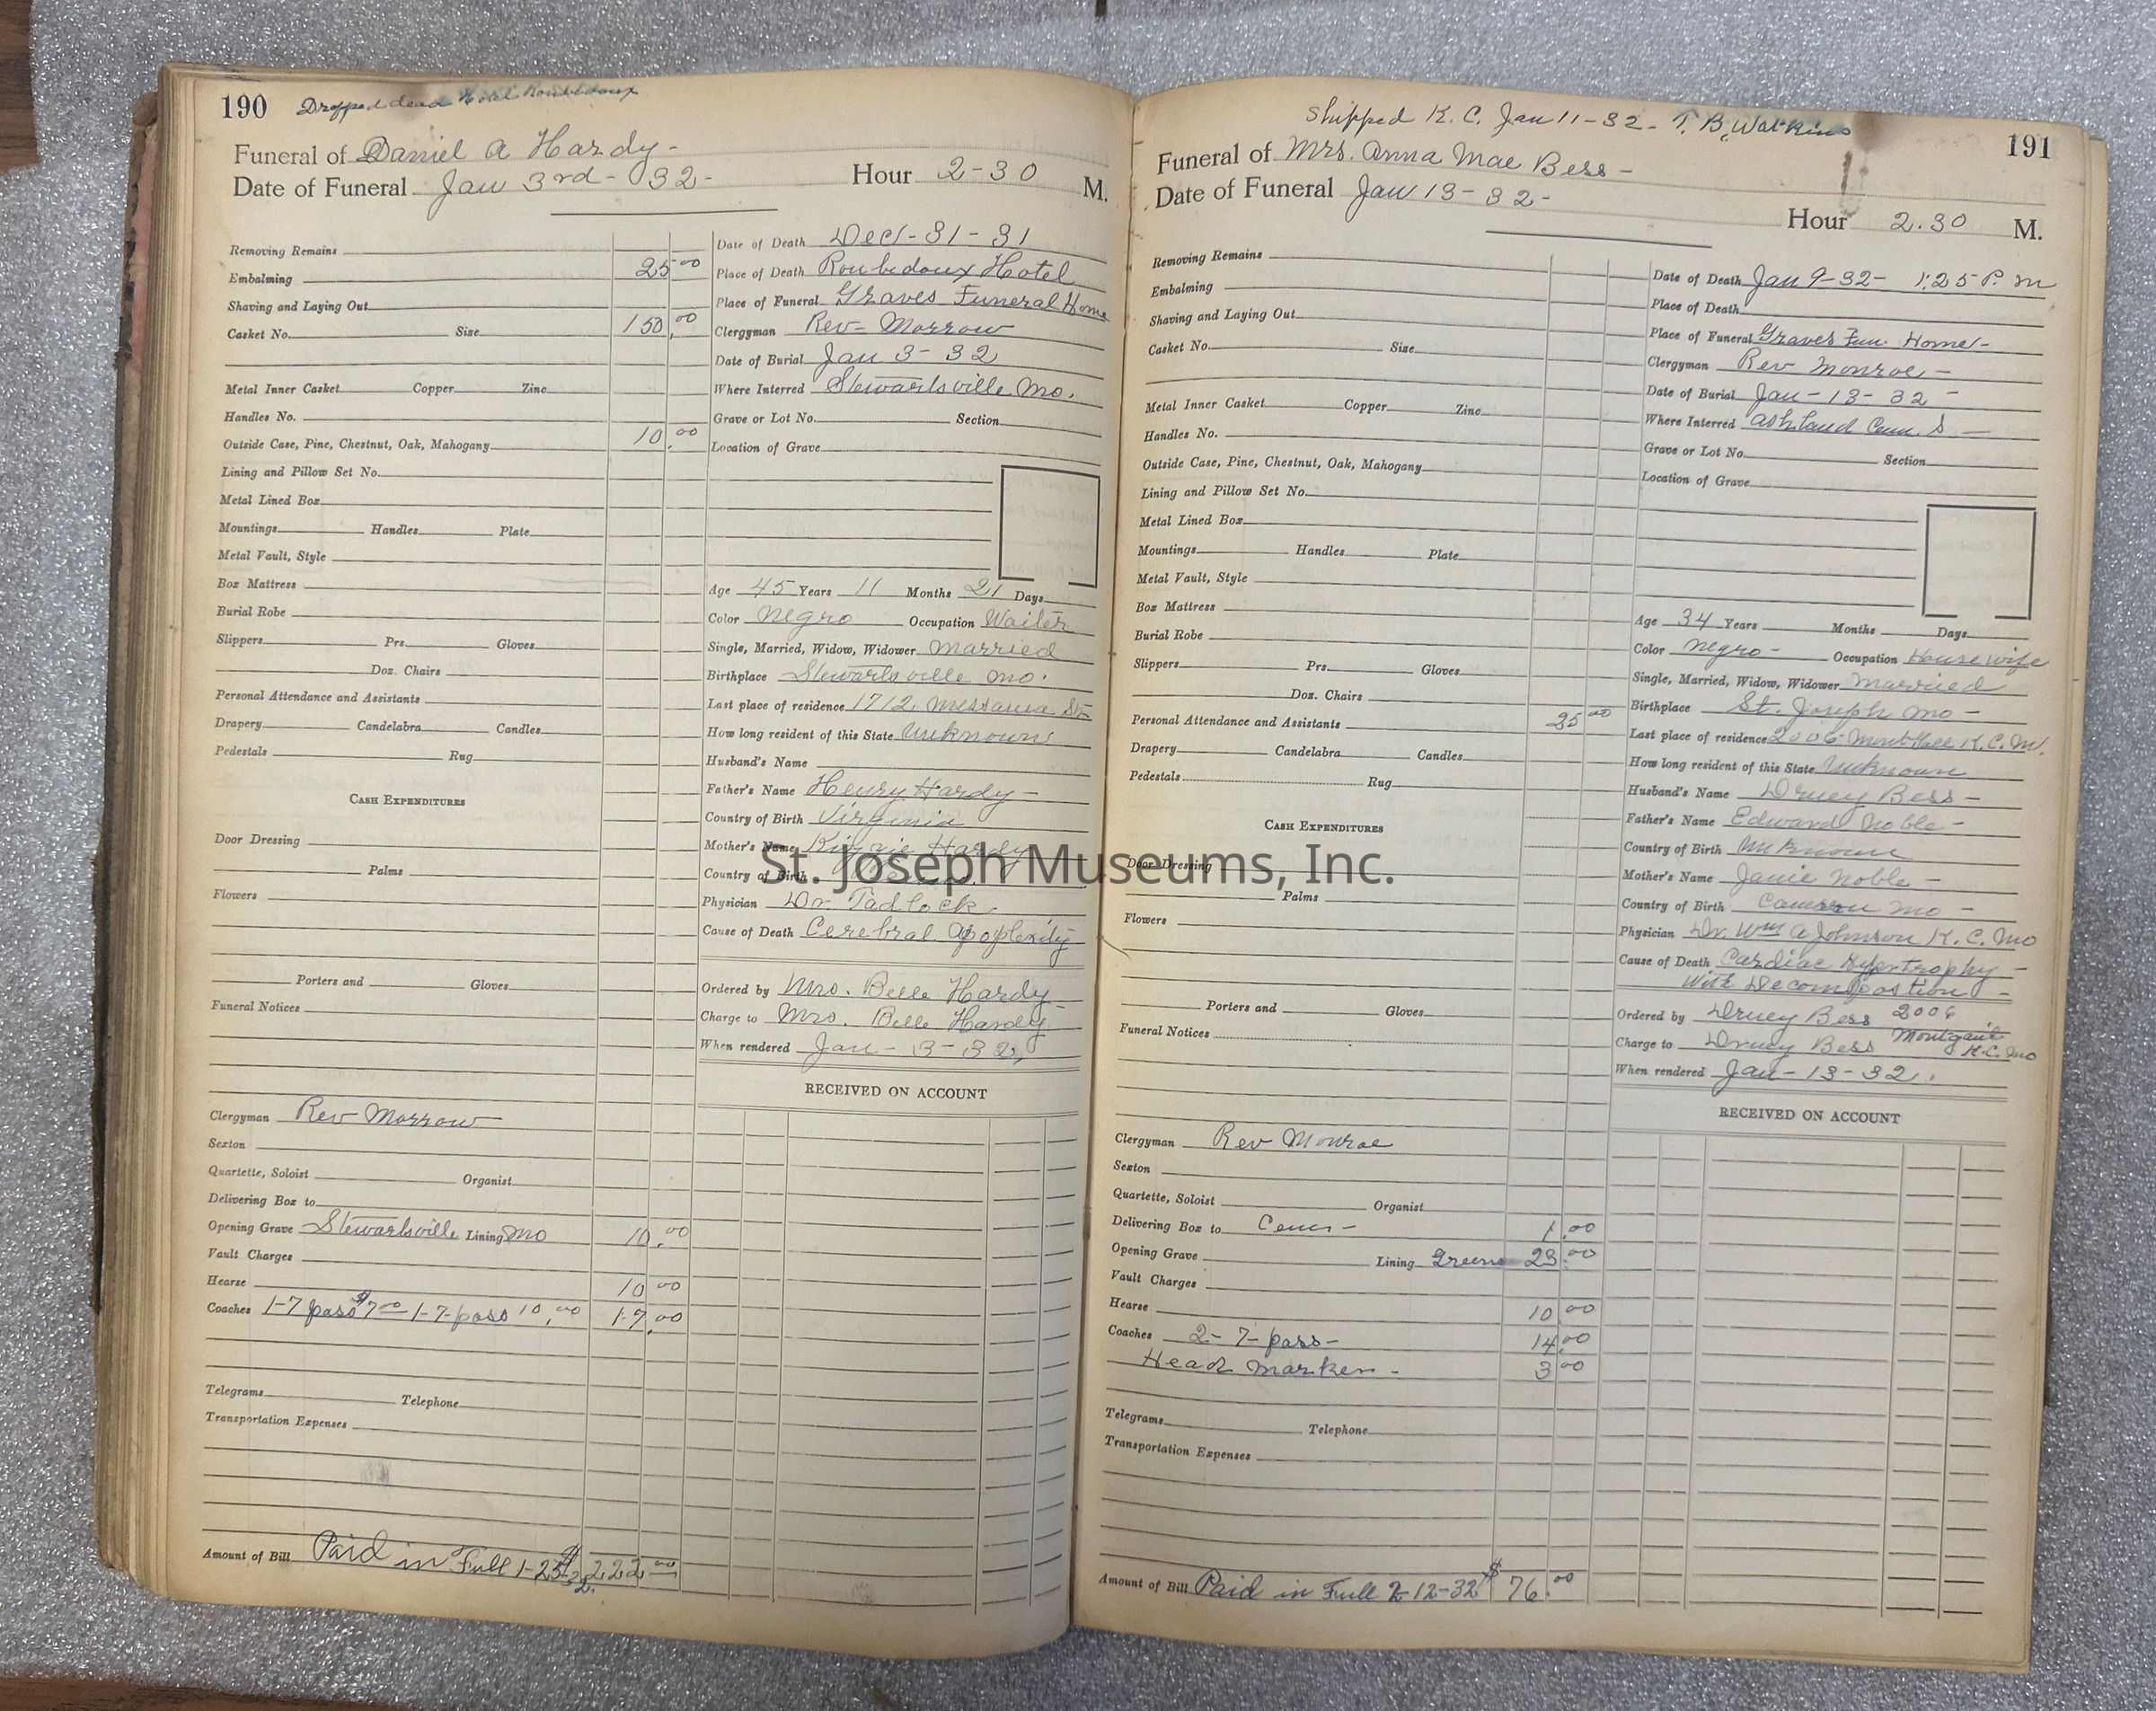 190 Dropped dead Hotel Roubidoux
Funeral of Daniel A Hardy-
Date of Funeral Jan 3rd- 32- Hour 2-30 M.
Removing Remains
Embalming 25.00
Shaving and Laying Out
Casket No. Size 150.00
Metal Inner Casket Copper Zinc
Handles No.
Outside Case, Pine, Chestnut, Oak, Mahogany 10.00
Lining and Pillow Set No.
Metal Lined Box
Mountings Handles Plate
Metal Vault, Style
Box Mattress
Burial Robe
Slippers Prs. Gloves
Doz. Chairs
Personal Attendance and Assistants
Drapery Candelabra Candles
Pedestals Rug
CASH EXPENDITURES
Door Dressing
Palms
Flowers
Porters and Gloves
Funeral Notices
Clergyman Rev Morrow
Sexton
Quartette, Soloist Organist
Delivering Box to
Opening Grave Stewartsville Lining Mo 10.00
Vault Charges
Hearse 10 00
Coaches 1-7 pass $7 00 1-7-pass 10.00 17.00
Telegrams Telephone
Transportation Expenses
Amount of Bill Paid in Full 1-25-32. $222.00
Date of Death Dec-31-31
Place of Death Roubidoux Hotel
Place of Funeral Graves Funeral Home
Clergyman Rev- Morrow
Date of Burial Jan 3-32
Where Interred Stewartsville Mo.
Grave or Lot No. Section
Location of Grave
Age 45 Years 11 Months 21 Days
Color Negro Occupation Waiter
Single, Married, Widow, Widower Married
Birthplace Stewartsville Mo.
Last place of residence 1712 Messanie St
How long resident of this State Unknown
Husband's Name
Father's Name Henry Hardy-
Country of Birth Virginia
Mother's Name Hardy
Country of Birth
Physician Dr Tadlock-
Cause of Death Cerebral Apoplexity
Ordered by Mrs. Belle Hardy
Charge to Mrs. Belle Hardy
When rendered Jan-3-32,
RECEIVED ON ACCOUNT
Shipped K. C. Jan 11-32- T. B. Watkins
191
Funeral of Mrs. Anna Mae Bess-
Date of Funeral Jan 13-32- Hour 2.30 M.
Removing Remains
Embalming
Shaving and Laying Out
Casket No. Size
Metal Inner Casket Copper Zinc
Handles No.
Outside Case, Pine, Chestnut, Oak, Mahogany
Lining and Pillow Set No.
Metal Lined Box
Mountings Handles Plate
Metal Vault, Style
Box Mattress
Burial Robe
Slippers Prs. Gloves
Doz. Chairs
Personal Attendance and Assistants 25 00
Drapery Candelabra Candles
Pedestals Rug
CASH EXPENDITURES
Door Dressing
Palms
Flowers
Porters and Gloves
Funeral Notices
Clergyman Rev Monroe
Sexton
Quartette, Soloist Organist
Delivering Box to Cem- 1.00
Opening Grave Lining Greens 23.00
Vault Charges
Hearse 10 00
Coaches 2-7-pass- 14.00
Head Marker- 3 00
Telegrams Telephone
Transportation Expenses
Amount of Bill Paid in Full 2-12-32 $76.00
Date of Death Jan 9-32- 1:25 P. M
Place of Death
Place of Funeral Graves Fun. Home-
Clergyman Rev Monroe-
Date of Burial Jan-13-32-
Where Interred Ashland Cem. S-
Grave or Lot No. Section
Location of Grave
Age 34 Years Months Days
Color Negro- Occupation Housewife
Single, Married, Widow, Widower Married
Birthplace St. Joseph Mo-
Last place of residence 2006 K. C. M.
How long resident of this State Unknown
Husband's Name Druey Bess-
Father's Name Edward Noble-
Country of Birth Unknown
Mother's Name Janie Noble-
Country of Birth Mo-
Physician Dr. Wm A Johnson K. C. Mo
Cause of Death Cardiac Hypertrophy-
With Decompostion-
Ordered by Druey Bess 2006
Charge to Druey Bess Montgall K.C. Mo
When rendered Jan-13-32.
RECEIVED ON ACCOUNT
St. Joseph Museums, Inc.